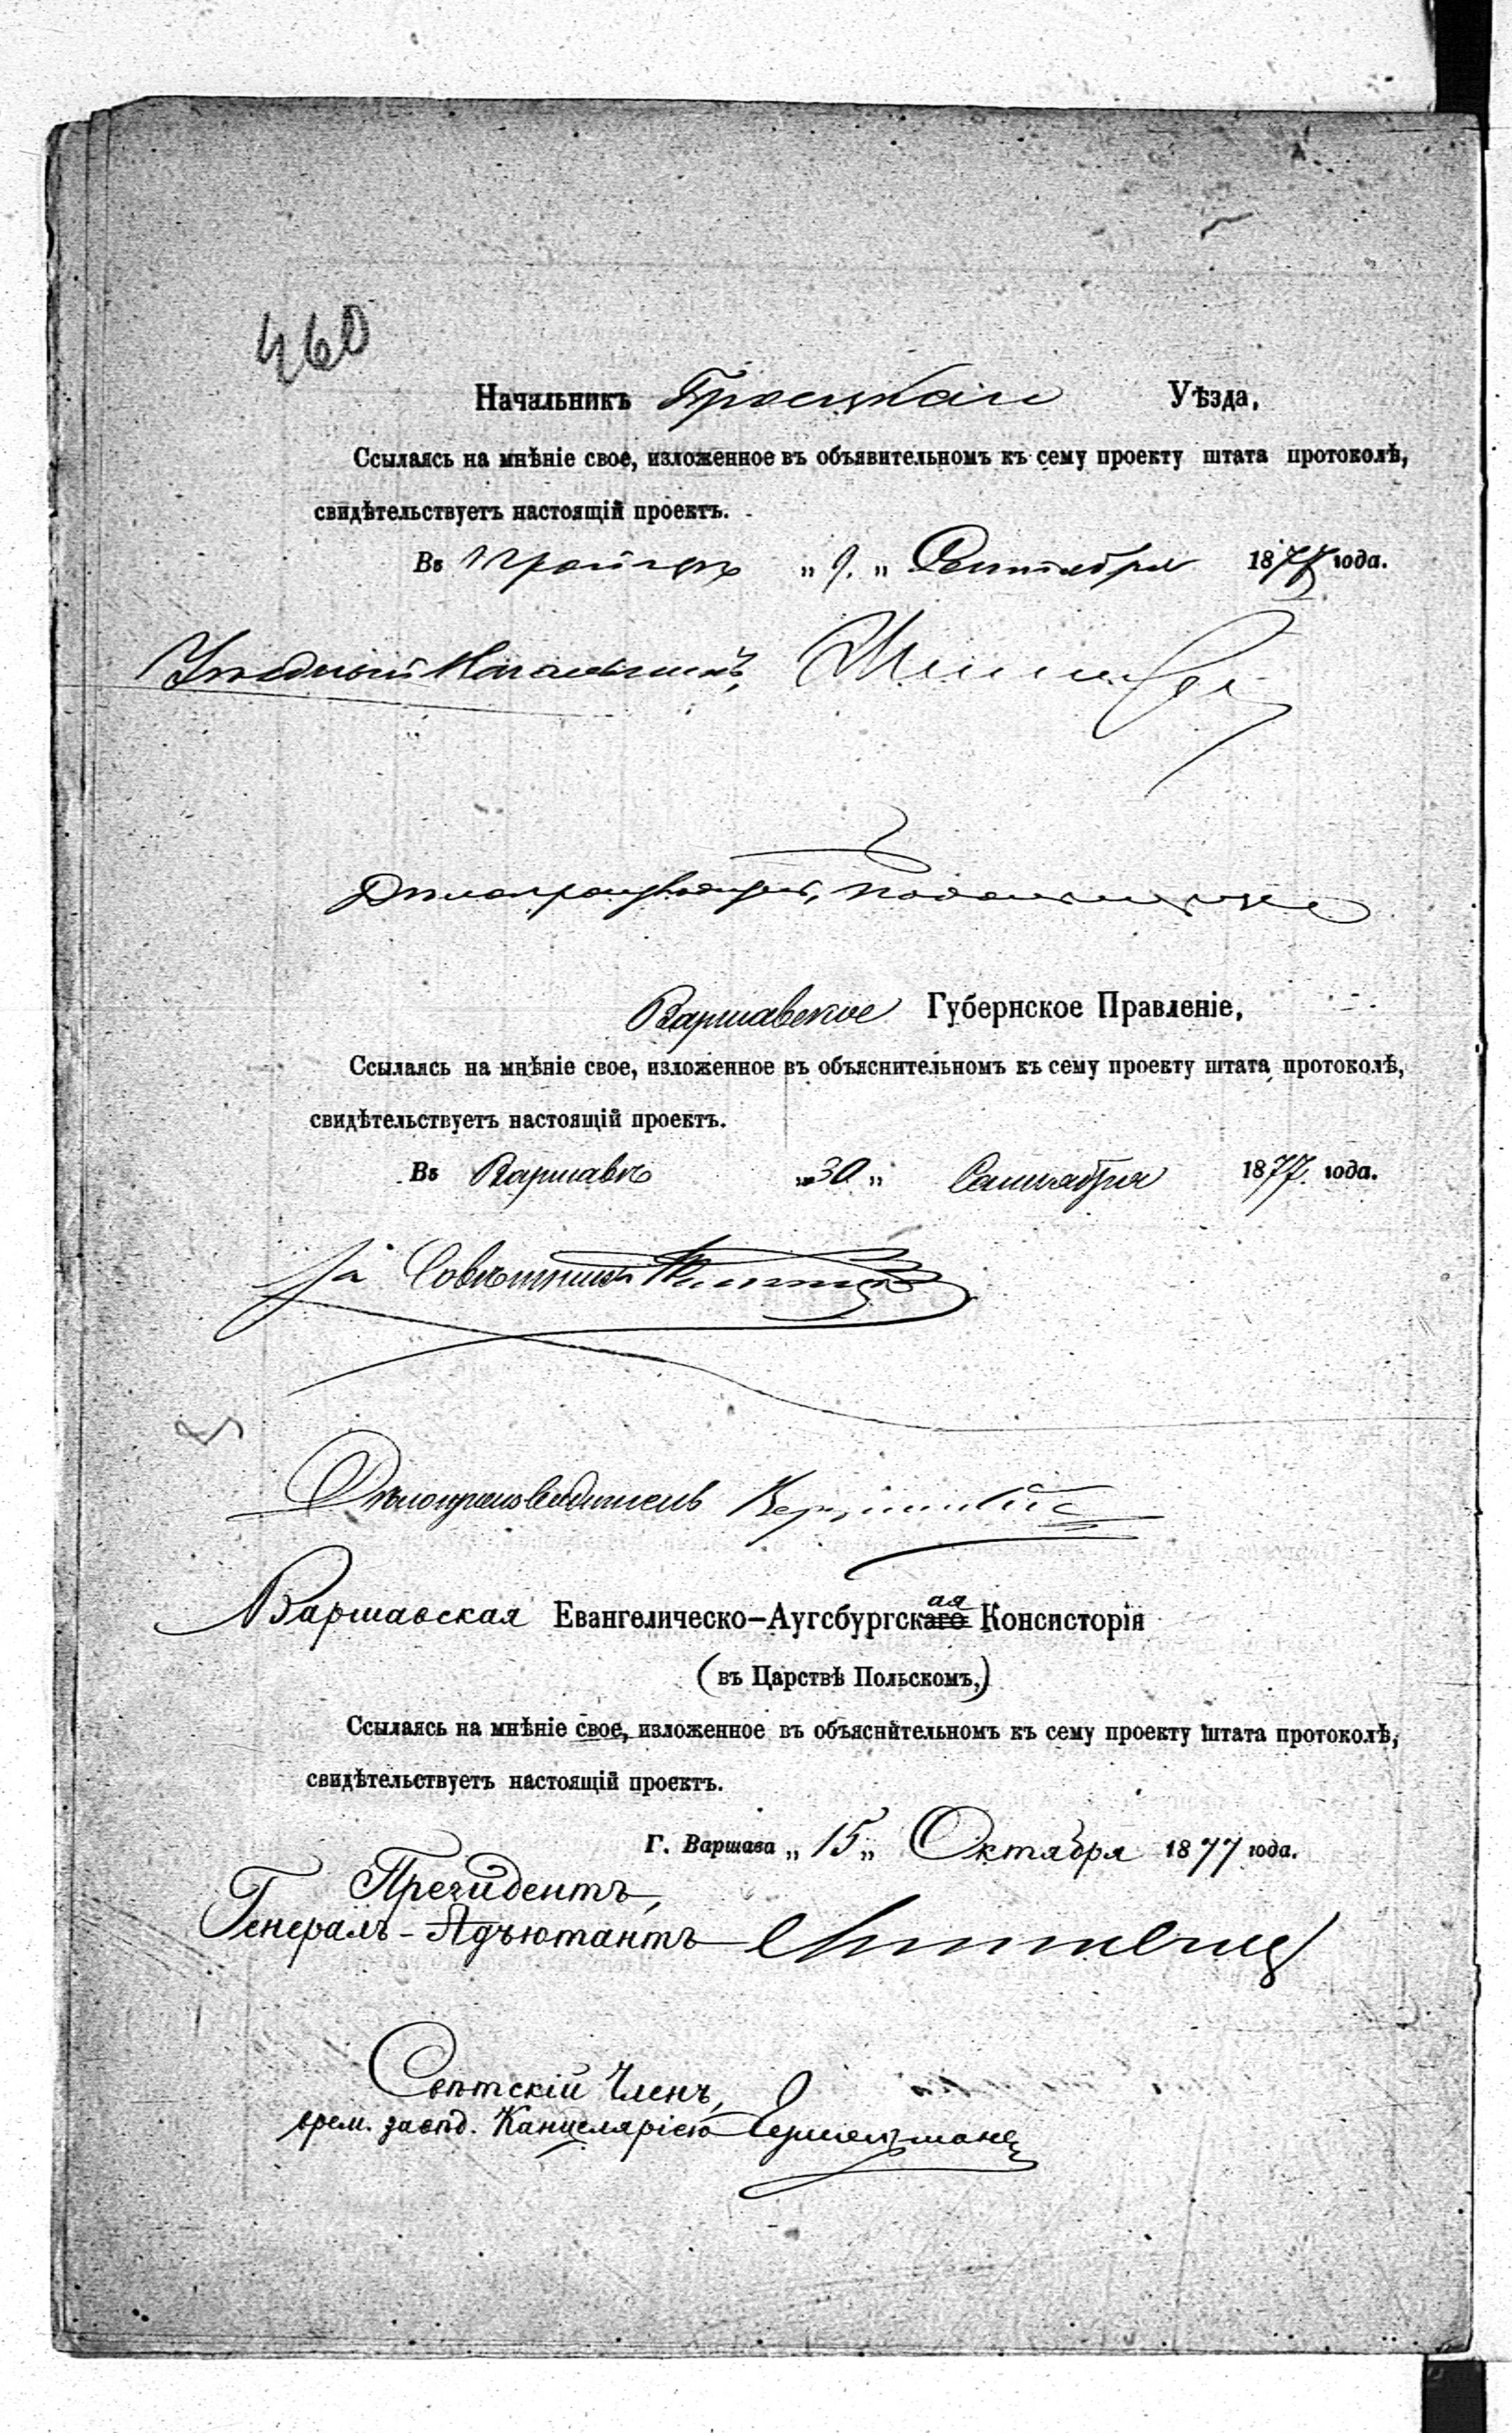 460
Начальникъ Гроецкаго Уѣзда,
Ссылаясь на мнѣніе свое, изложенное въ объявительномъ къ сему проекту штата протоколѣ,
свидѣтельствуетъ настоящій проектъ.
Въ „ 9. „ Сентября 1877 года.
Уѣздный Начальникъ,
Варшавское Губернское Правленіе,
Ссылаясь на мнѣніе свое, изложенное въ объяснительномъ къ сему проекту штата протоколѣ,
свидѣтельствуетъ настоящій проектъ.
Въ Варшавѣ „ 30 „ Сентября 1877 года.
За Совѣтника
Дѣлопроизводитель
Варшавская Евангелическо-Аугсбургскаго ая Консисторія
(въ Царствѣ Польскомъ,)
Ссылаясь на мнѣніе свое, изложенное въ объяснительномъ къ сему проекту штата протоколѣ,
свидѣтельствуетъ настоящій проектъ.
Г. Варшава „ 15 „ Октября 1877 года.
Президентъ,
Генералъ-Адъютантъ
Свѣтскій Членъ,
врем. завѣд. Канцеляріею